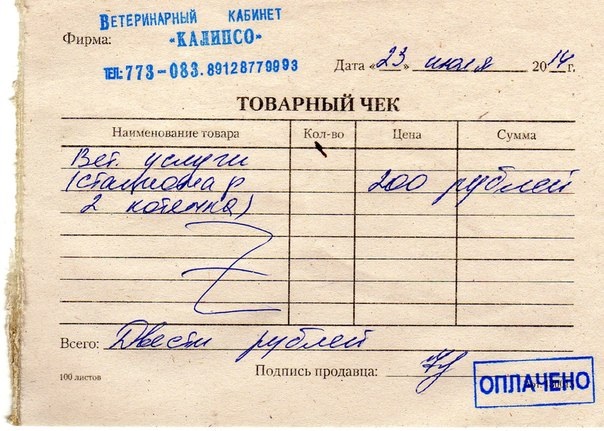 Ветеринарный кабинет
Фирма: «КАЛИПСО»
тел: 773-083. 89128779993
Дата «23» июля 2014г.
ТОВАРНЫЙ ЧЕК
Наименование товара Кол-во Цена Сумма
Вет. услуги
(стационар 200 рублей
2 котенка)
Всего: Двести рублей
100 листов
Подпись продавца:
ОПЛАЧЕНО